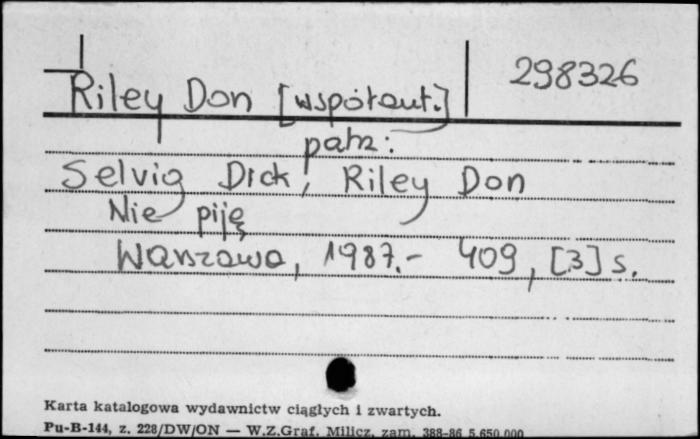 298326
Riley Don [współaut.]
patrz:
Selvig Dick, Riley Don
Nie piję
Warszawa, 1987.- 409, [3] s.
Karta katalogowa wydawnictw ciągłych i zwartych.
Pu-B-144, z. 228/DW/ON — W.Z.Graf. Milicz, zam. 388-86 5.650.000